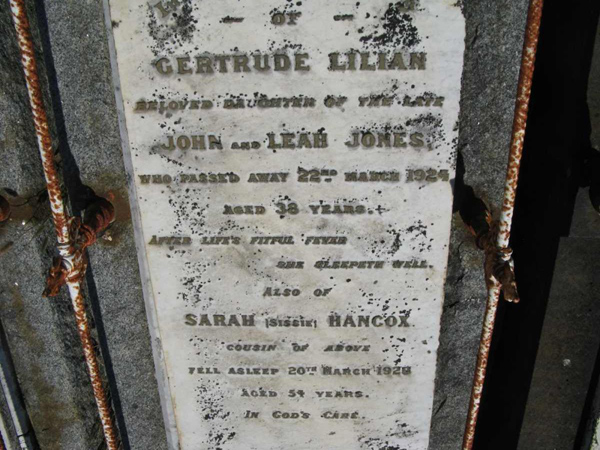 — OF —
GERTRUDE LILIAN
BELOVED DAUGHTER OF THE LATE
JOHN AND LEAH JONES,
WHO PASSED AWAY 22ND MARCH 1924
AGED 38 YEARS.
AFTER LIFE'S FITFUL FEVER
SHE SLEEPETH WELL.
ALSO OF
SARAH (SISSIE) HANCOX
COUSIN OF ABOVE
FELL ASLEEP 20TH MARCH 1928
AGED 54 YEARS.
IN GOD'S CARE.